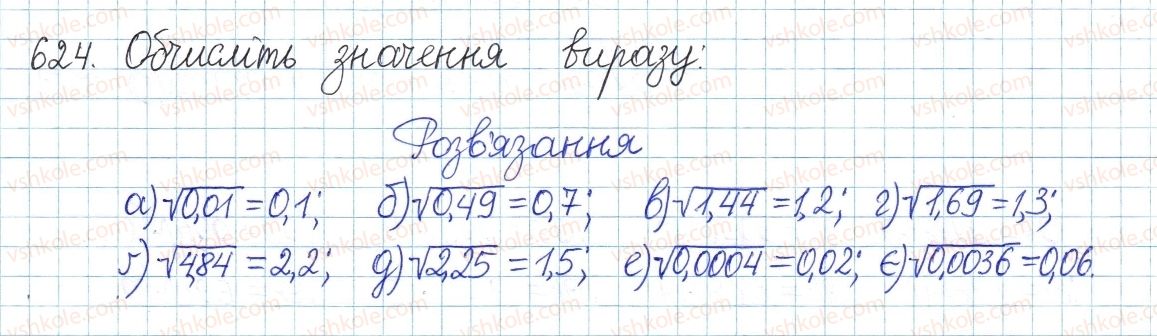 624. Обчисліть значення виразу:
Розв'язання
а) √0,01 = 0,1; б) √0,49 = 0,7; в) √1,44 = 1,2; г) √1,69 = 1,3;
ґ) √4,84 = 2,2; д) √2,25 = 1,5; е) √0,0004 = 0,02; є) √0,0036 = 0,06.